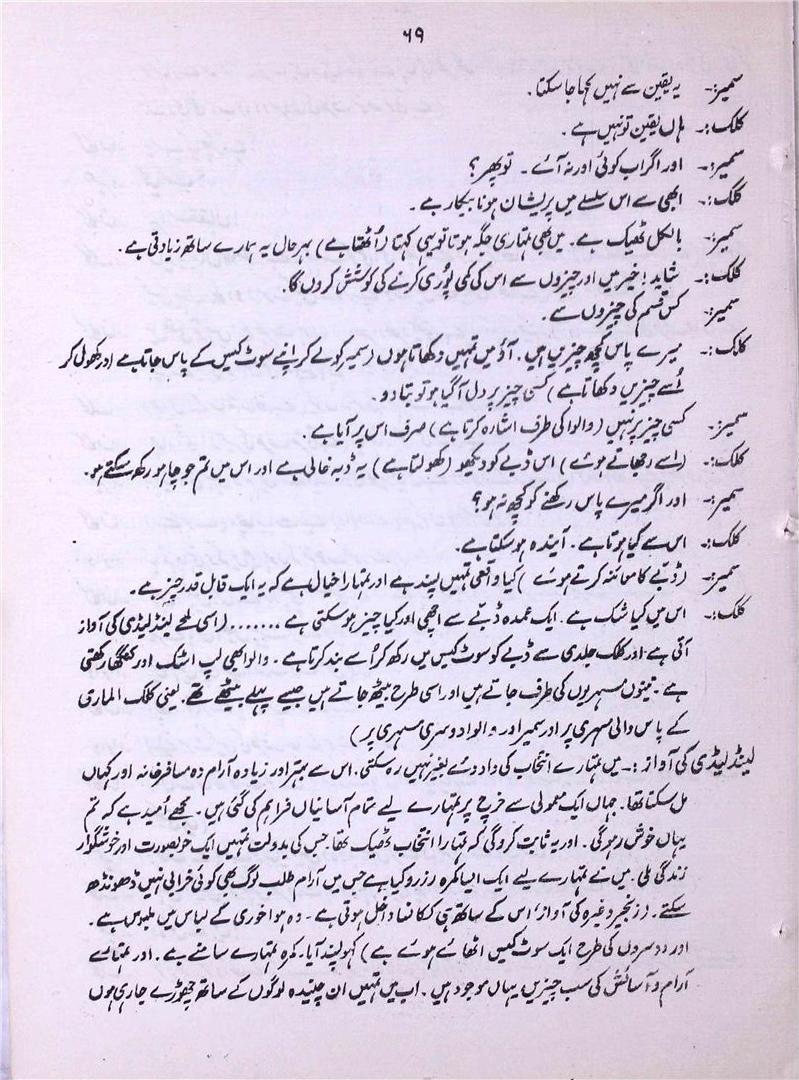 ۶۹
سمیر:۔ یہ یقین سے نہیں کہا جا سکتا۔
کلک:۔ ہاں یقین تو نہیں ہے۔
سمیر:۔ اور اگر اب کوئی اور نہ آئے۔ تو پھر؟
کلک:۔ ابھی سے اس سلسلے میں پریشان ہونا بیکار ہے۔
سمیر:۔ بالکل ٹھیک ہے۔ میں بھی تمہاری جگہ ہوتا تو یہی کہتا (اُٹھتا ہے) بہرحال یہ ہمارے ساتھ زیادتی ہے۔
کلک:۔ شاید! خیر میں اور چیزوں سے اس کی کمی پوری کرنے کی کوشش کروں گا۔
سمیر:۔ کس قسم کی چیزوں سے۔
کلک:۔ میرے پاس کچھ چیزیں ہیں۔ آؤ میں تمہیں دکھاتا ہوں (سمیر کو لے کر اپنے سوٹ کیس کے پاس جاتا ہے اور کھول کر
اُسے چیزیں دکھاتا ہے) کسی چیز پر دل آ گیا ہو تو بتا دو۔
سمیر:۔ کسی چیز پر نہیں (والوا کی طرف اشارہ کرتا ہے) صرف اس پر آیا ہے۔
کلک:۔ (اسے رجھاتے ہوئے) اس ڈبے کو دیکھو (کھولتا ہے) یہ ڈبہ خالی ہے اور اس میں تم جو چاہو رکھ سکتے ہو۔
سمیر:۔ اور اگر میرے پاس رکھنے کو کچھ نہ ہو؟
کلک:۔ اس سے کیا ہوتا ہے۔ آیندہ ہو سکتا ہے۔
سمیر:۔ (ڈبے کا معائنہ کرتے ہوئے) کیا واقعی تمہیں پسند ہے اور تمہارا خیال ہے کہ یہ ایک قابل قدر چیز ہے۔
کلک:۔ اس میں کیا شک ہے۔ ایک عمدہ ڈبے سے اچھی اور کیا چیز ہو سکتی ہے ....... (اسی لمحے لینڈ لیڈی کی آواز
آتی ہے اور کلک جلدی سے ڈبے کو سوٹ کیس میں رکھ کر اُسے بند کرتا ہے۔ والوا بھی لپ اسٹک اور کنگھا رکھتی
ہے۔ تینوں مسہریوں کی طرف جاتے ہیں اور اسی طرح بیٹھ جاتے ہیں جیسے پہلے بیٹھے تھے۔ یعنی کلک الماری
کے پاس والی مسہری پر اور سمیر اور والوا دوسری مسہری پر)
لینڈ لیڈی کی آواز:۔ میں تمہارے انتخاب کی داد دئے بغیر نہیں رہ سکتی۔ اس سے بہتر اور زیادہ آرام دہ مسافر خانہ اور کہاں
مل سکتا تھا۔ جہاں ایک معمولی سے خرچ پر تمہارے لیے تمام آسانیاں فراہم کی گئی ہیں۔ مجھے اُمید ہے کہ تم
یہاں خوش رہو گی۔ اور یہ ثابت کرو گی کہ تمہارا انتخاب ٹھیک تھا۔ جس کی بدولت تمہیں ایک خوبصورت اور خوشگوار
زندگی ملی۔ میں نے تمہارے لیے ایک ایسا کمرہ رزرو کیا ہے جس میں آرام طلب لوگ بھی کوئی خرابی نہیں ڈھونڈھ
سکتے۔ (زنجیر وغیرہ کی آواز، اس کے ساتھ ہی ککا نسا داخل ہوتی ہے۔ وہ ہوا خوری کے لباس میں ملبوس ہے۔
اور دوسروں کی طرح ایک سوٹ کیس اٹھائے ہوئے ہے) کہو پسند آیا۔ کمرہ تمہارے سامنے ہے۔ اور تمہارے
آرام و آسائش کی سب چیزیں یہاں موجود ہیں۔ اب میں تمہیں ان چیندہ لوگوں کے ساتھ چھوڑے جا رہی ہوں